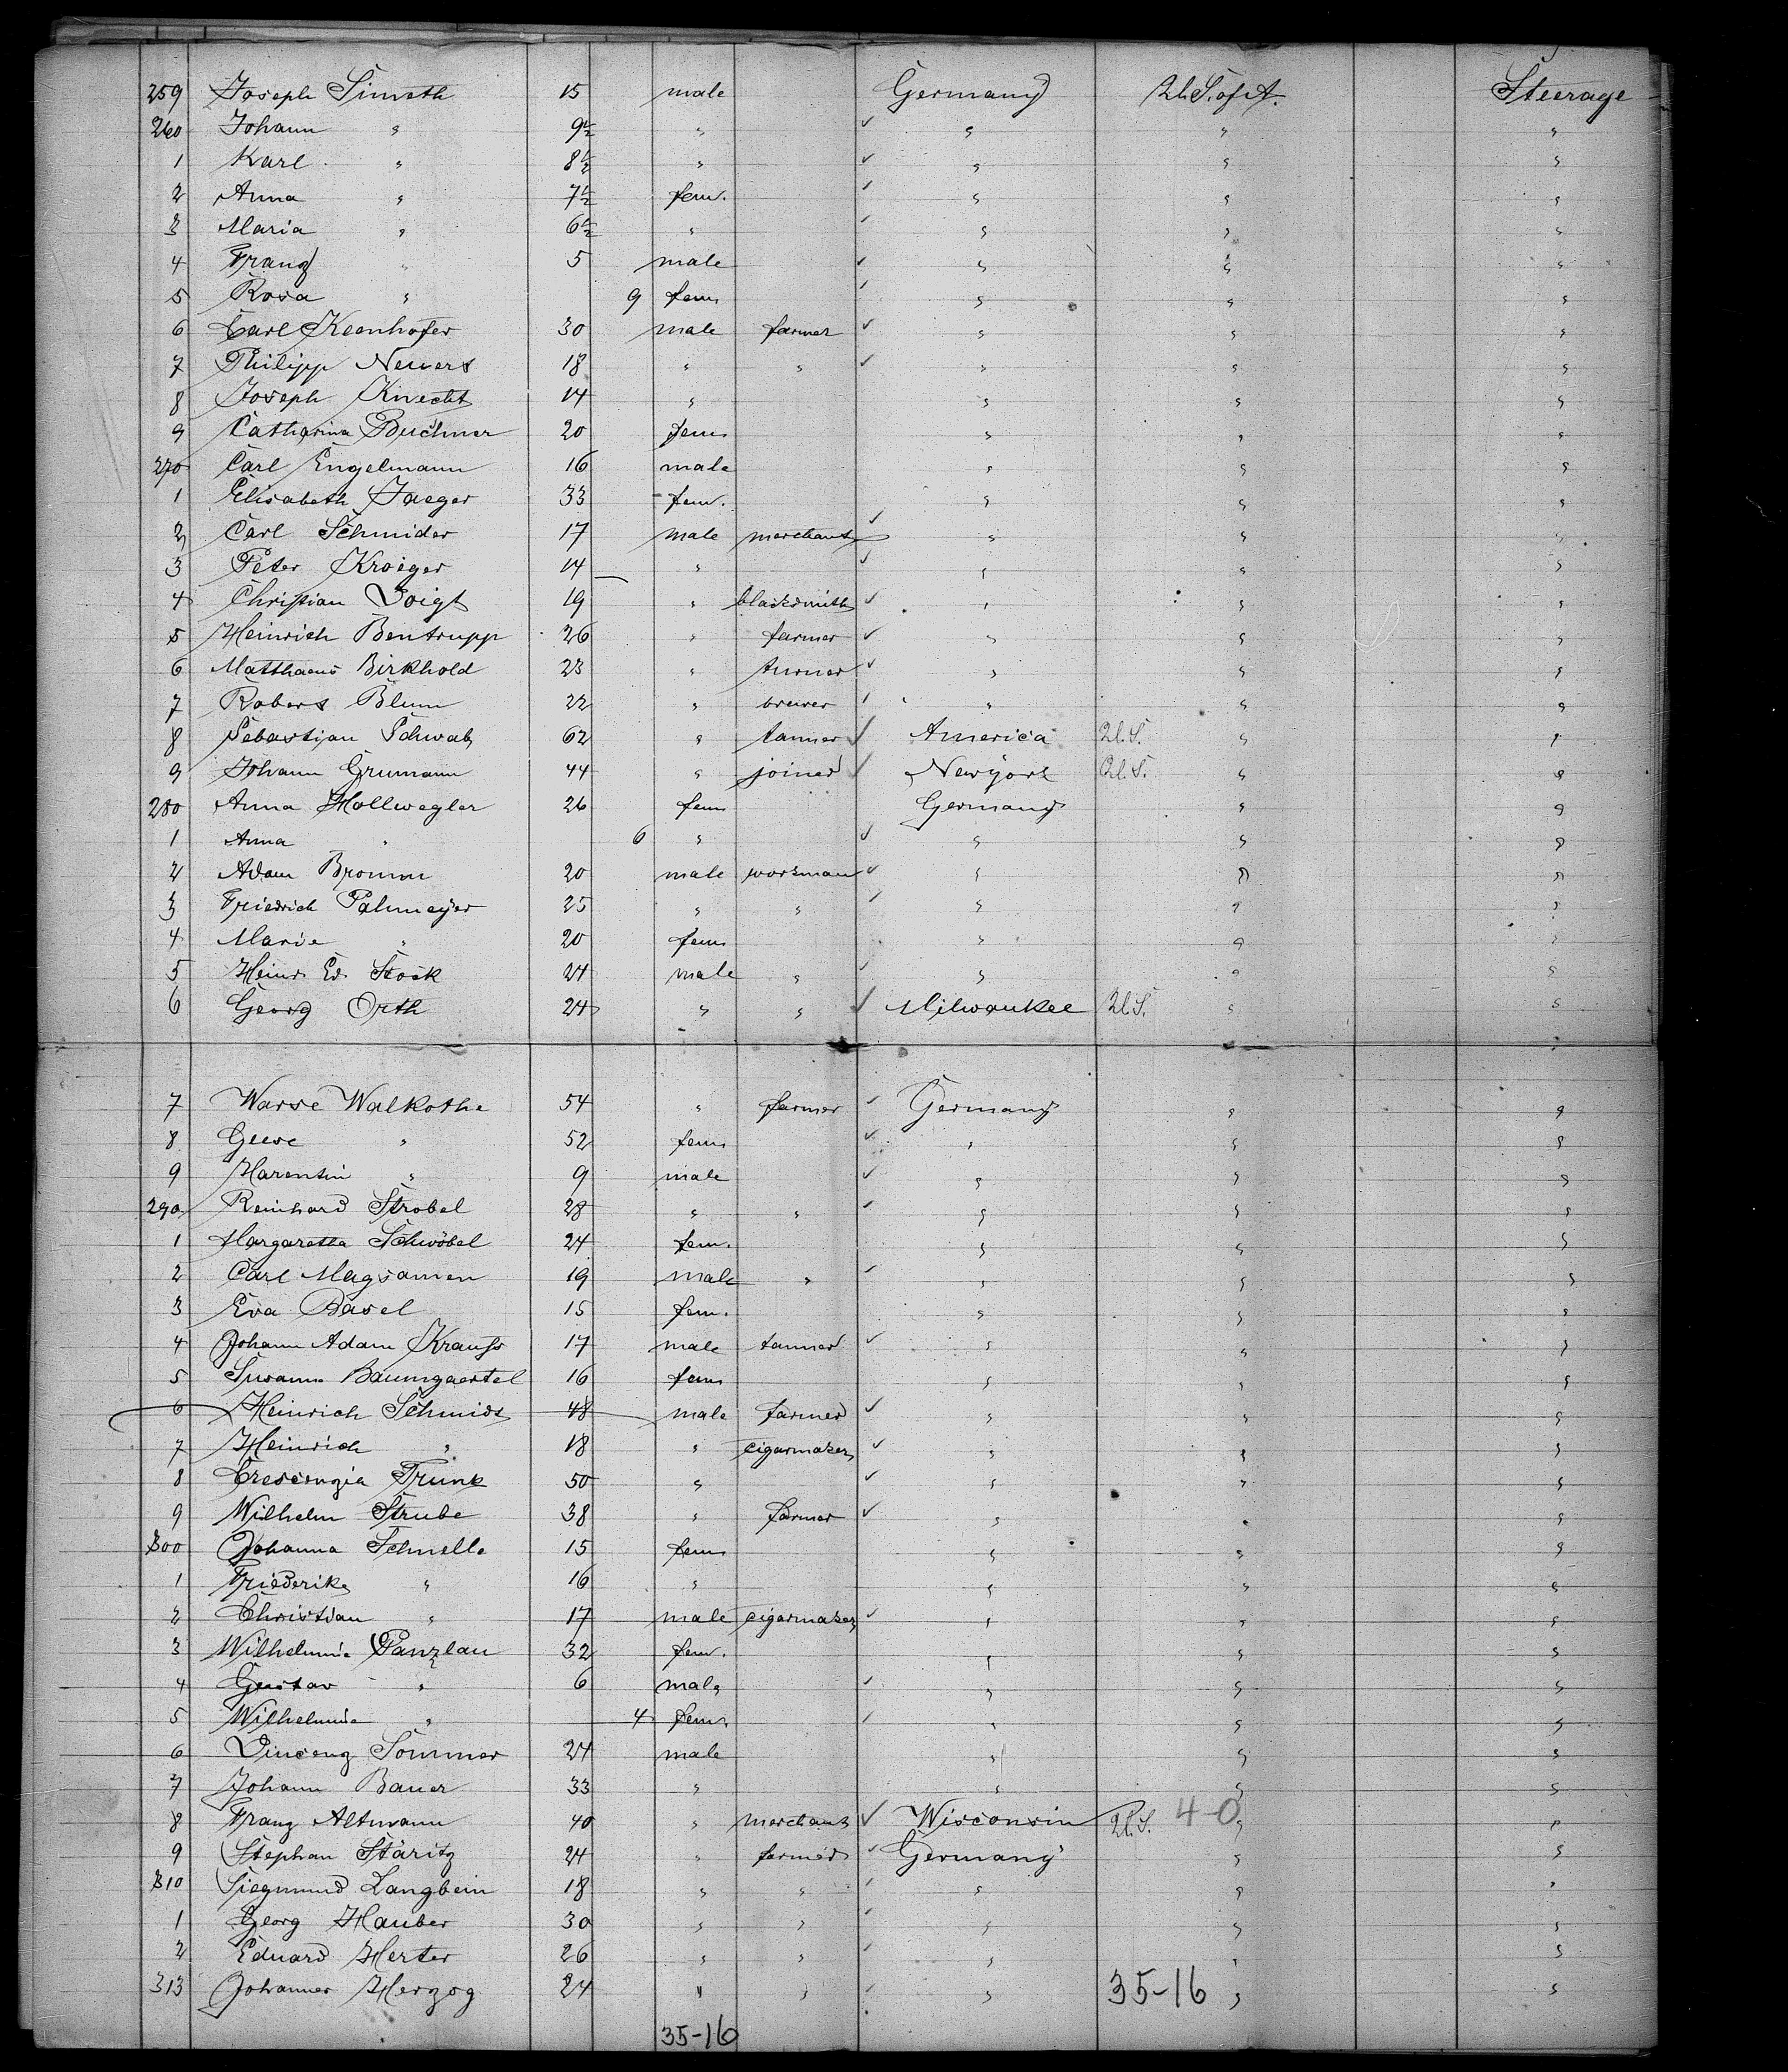 259 Joseph Simeth 15 male Germany U.S. of A. Steerage
260 Johann " 9½ " " " "
1 Karl " 8½ " " " "
2 Anna " 7½ fem. " " "
3 Maria " 6½ " " " "
4 Franz " 5 male " " "
5 Rosa " 9 fem " " "
6 Carl Keenhofer 30 male farmer " " "
7 Philipp Newers 18 " " " " "
8 Joseph Knecht 14 " " " "
9 Catharina Buchner 20 fem " " "
270 Carl Engelmann 16 male " " "
1 Elisabeth Jaeger 33 fem. " " "
2 Carl Schmider 17 male merchant " " "
3 Peter Kroeger 14 " " " "
4 Christian Voigt 19 " blacksmith " " "
5 Heinrich Bentrupp 26 " farmer " " "
6 Matthaeus Birkhold 23 " turner " " "
7 Robert Blum 22 " brewer " " "
8 Sebastian Schwab 62 " tanner America U.S. " "
9 Johann Grumann 44 " joiner Newyork U.S. " "
280 Anna Hollwegler 26 fem Germany " "
1 Anna " 6 " " " "
2 Adam Bromm 20 male workman " " "
3 Friedrich Palmeyer 25 " " " " "
4 Marie " 20 fem " " "
5 Heinr. Ed. Stock 24 male " " " "
6 Georg Orth 24 " " Milwaukee U.S. " "
7 Warse Walkothe 54 " farmer Germany " "
8 Geese " 52 fem " " "
9 Harentin " 9 male " " "
290 Reinhard Strobel 28 " " " " "
1 Margaretta Schwöbel 24 fem. " " "
2 Carl Magsamen 19 male " " " "
3 Eva Basel 15 fem. " " "
4 Johann Adam Krauss 17 male tanner " " "
5 Susanna Baumgaertel 16 fem " " "
6 Heinrich Schmidt 48 male farmer " " "
7 Heinrich " 18 " cigarmaker " " "
8 Crescenzia Trunk 50 " " " "
9 Wilhelm Strube 38 " farmer " " "
300 Johanna Schnelle 15 fem " " "
1 Friederike " 16 " " " "
2 Christian " 17 male cigarmaker " " "
3 Wilhelmine Panzlau 32 fem. " " "
4 Gustav " 6 male " " "
5 Wilhelmine " 4 fem. " " "
6 Vincenz Sommer 24 male " " "
7 Johann Bauer 33 " " " "
8 Franz Altmann 40 " merchant Wisconsin U.S. 4-0 " "
9 Stephan Stäritz 24 " farmer Germany " "
310 Siegmund Langbein 18 " " " " "
1 Georg Hauber 30 " " " " "
2 Eduard Herter 26 " " " " "
313 Johannes Herzog 24 " " " 35-16 " "
35-16